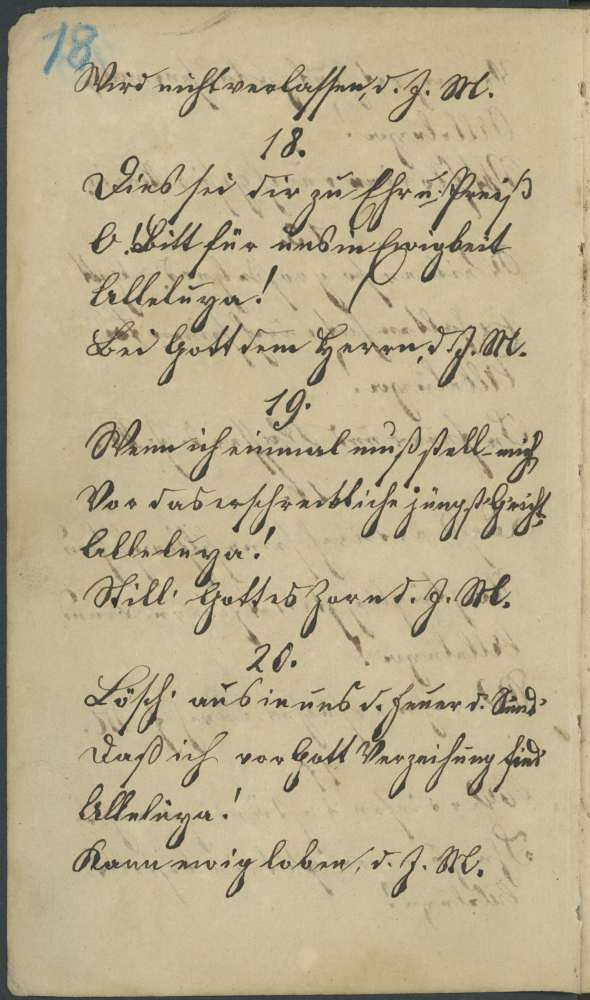 18
Wird nicht verlassen, d. J. M.
18.
Dies sei dir zu Ehr u. Preiß
O! Bitt für uns in Ewigkeit
Alleluya!
Bei Gott dem Herrn, d. J. M.
19.
Wenn ich einmal muß stell-mich
Vor das erschreckliche jüngst Gericht
Alleluya!
Still' Gottes Zorn d. J. M.
20.
Lösch' aus in uns d. Feuer d. Sünd'
Daß ich vor Gott Verzeihung find'
Alleluya!
Kann ewig loben, d. J. M.